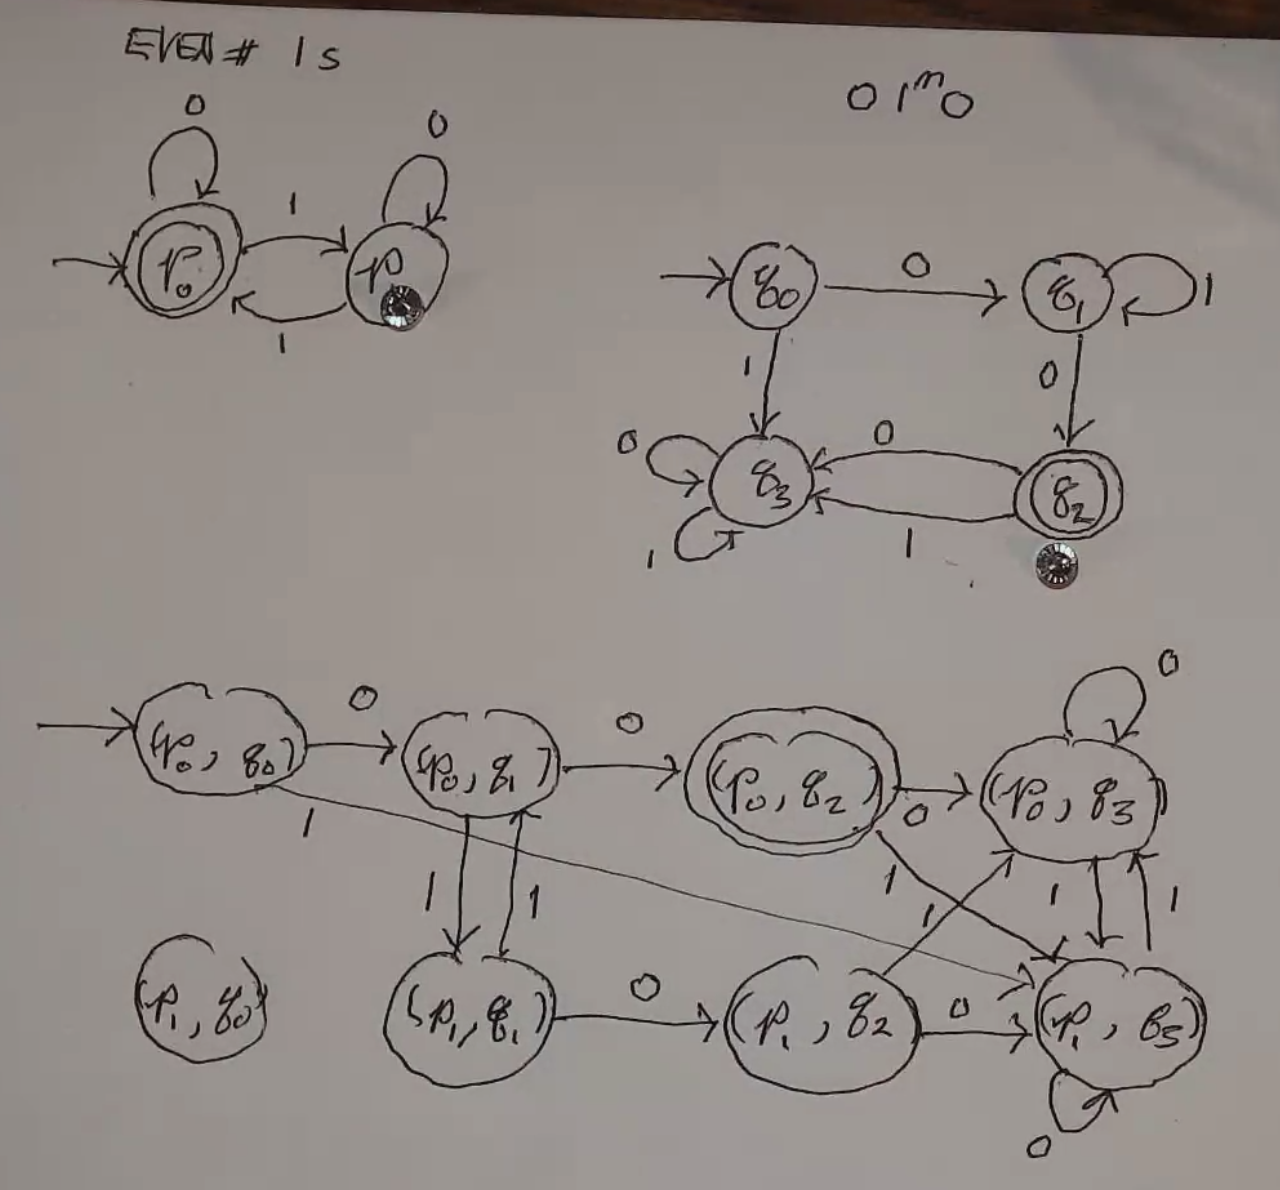 EVEN # 1s
01ᵐ0
0
0
1
p₀
p
1
q₀
0
q₁
1
1
0
0
0
q₃
q₂
1
1
0
(p₀, q₀)
0
(p₀, q₁)
0
(p₀, q₂)
0
(p₀, q₃)
1
1
1
1
1
1
1
(p₁, q₀)
(p₁, q₁)
0
(p₁, q₂)
0
(p₁, q₃)
0